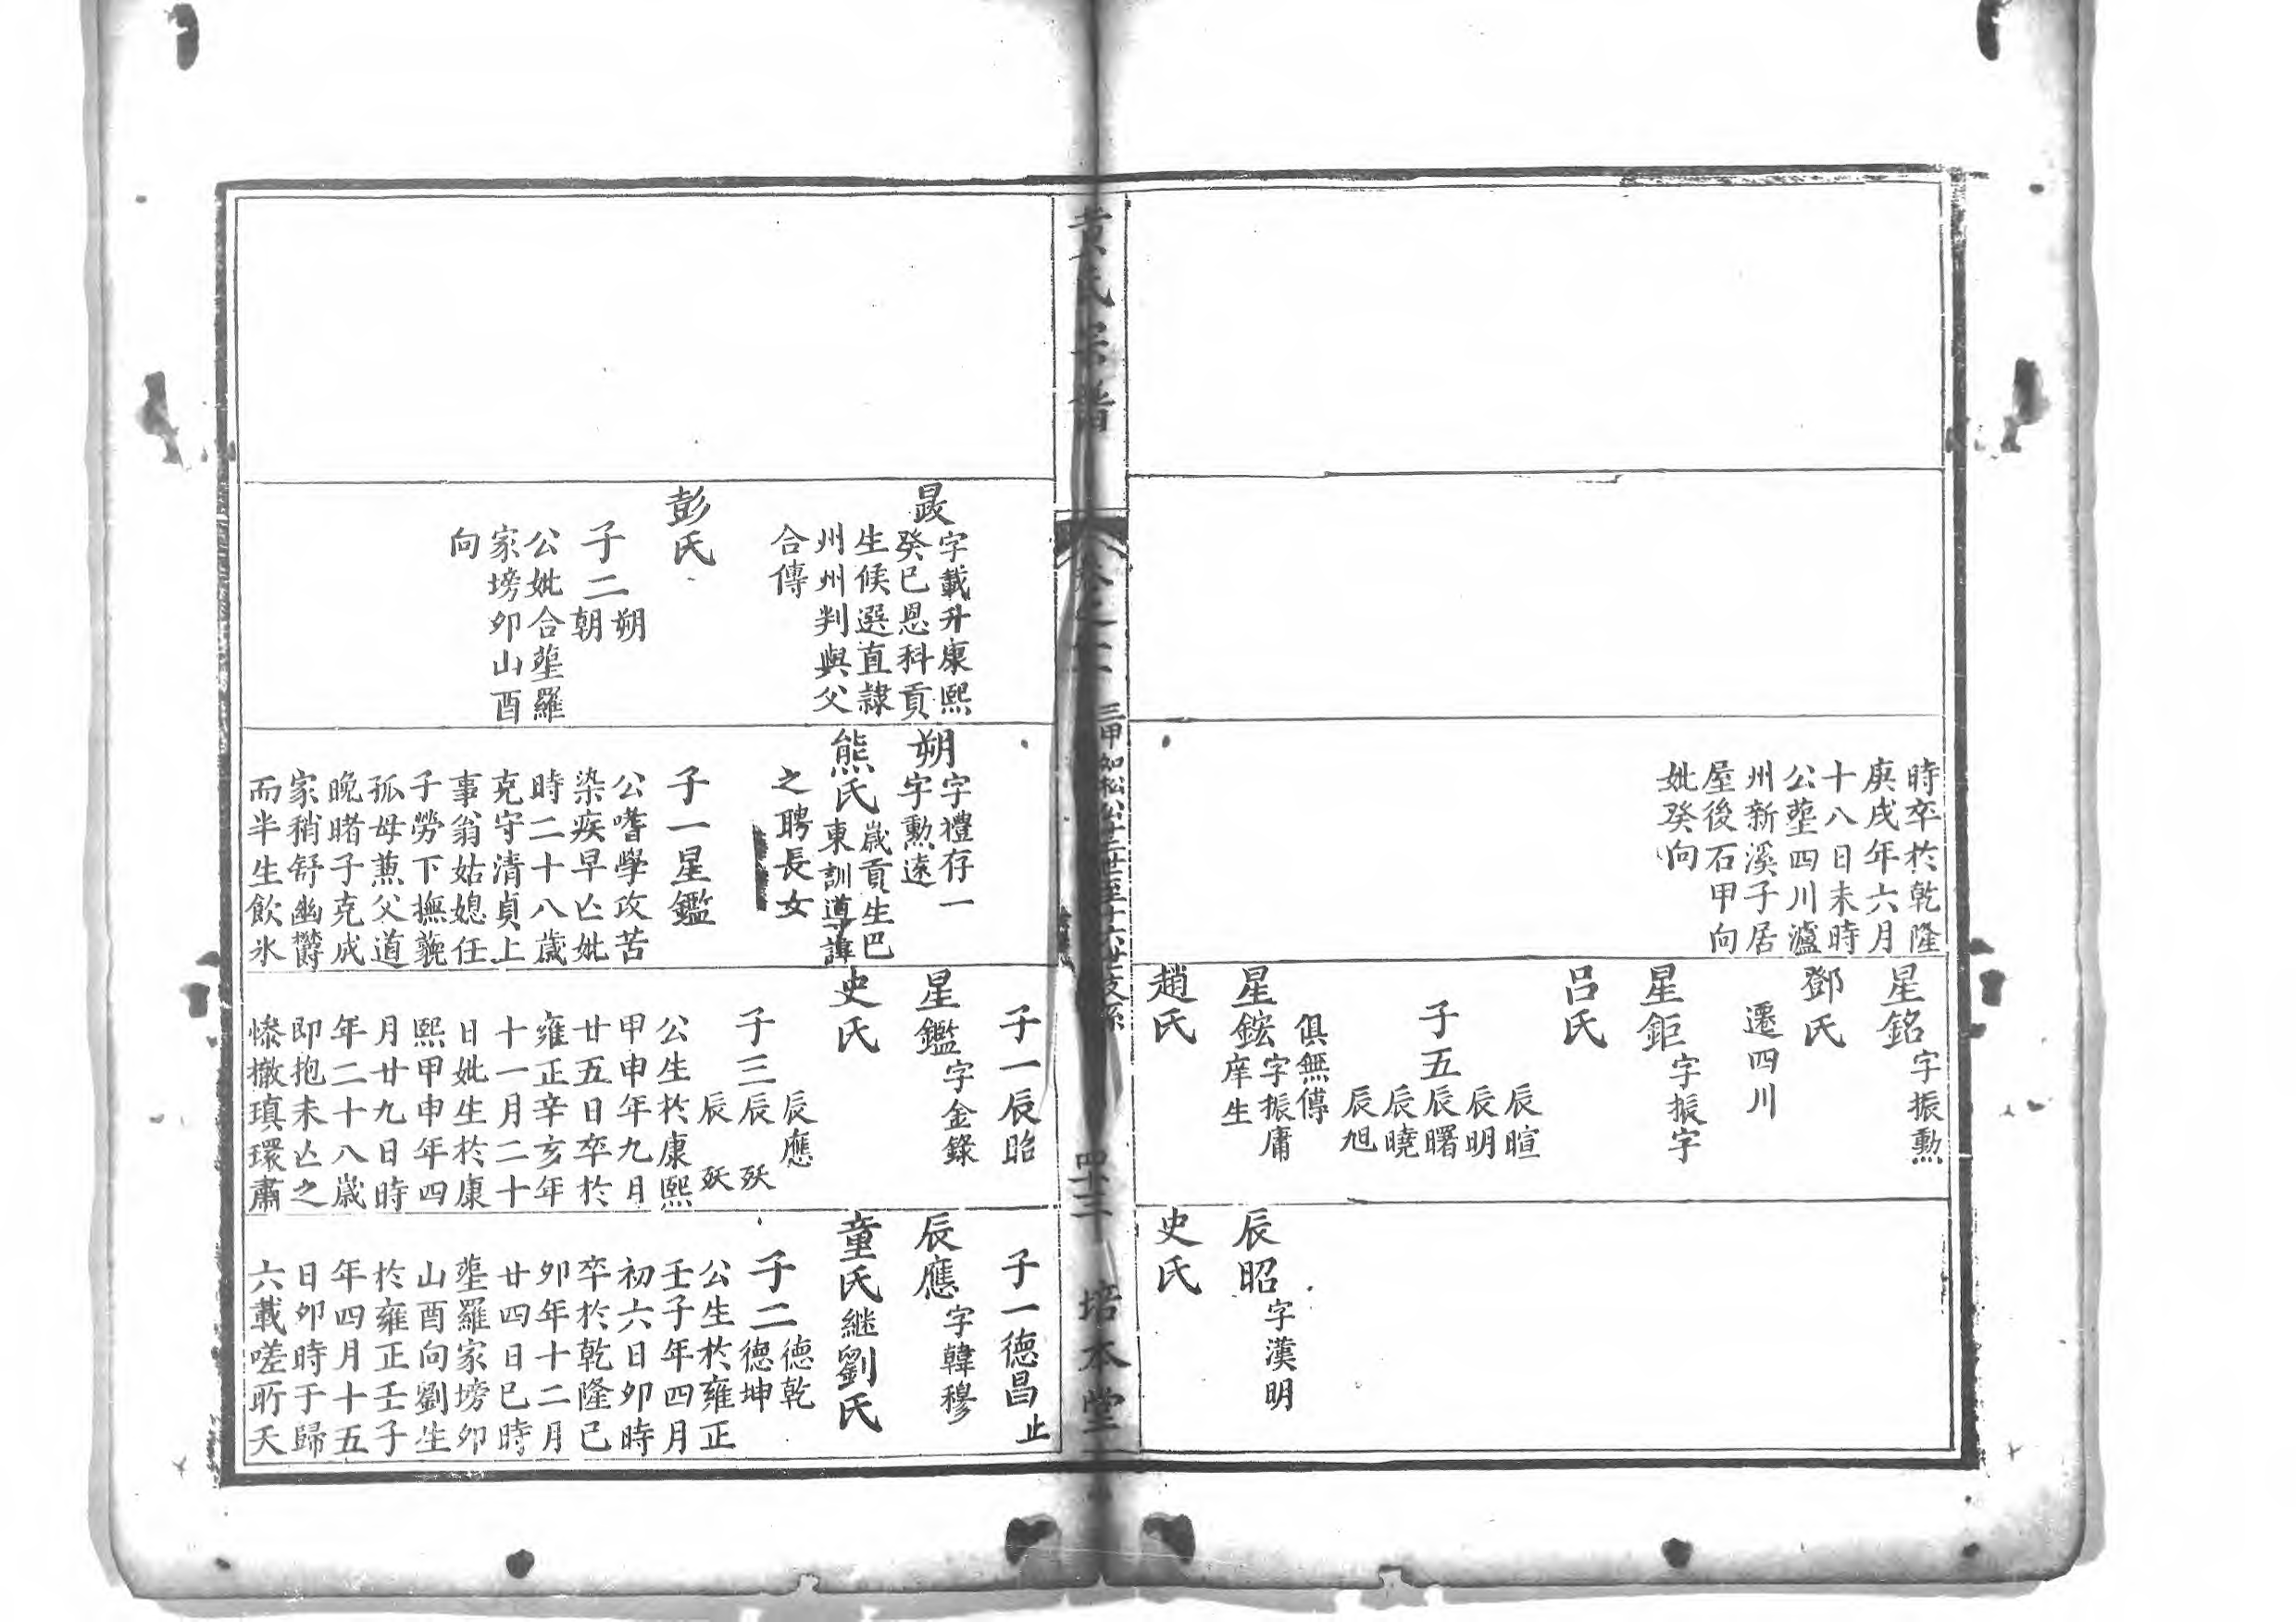 時卒於乾隆
庚戌年六月
十八日未時
公塟四川瀘
州新溪子居
屋後石甲向
妣癸向
星銘字振勲
鄧氏
遷四川
星鉅字振宇
呂氏
子五
辰暄
辰明
辰曙
辰曉
辰旭
俱無傳
星鋐字振庸
庠生
趙氏
辰昭字漢明
史氏
黃氏宗譜
卷之
三甲如松公十三世至十六世支系
四十三
培本堂
晸字載升康熙
癸巳恩科貢
生候選直隷
州州判與父
合傳
彭氏
子二朔
朝
公妣合塟羅
家塝夘山酉
向
朔字禮存一
字勲遠
熊氏歲貢生巴
東訓導諱
之聘長女
子一星鑑
公嗜學攻苦
染疾早亾妣
時二十八歲
克守清貞上
事翁姑媳任
子勞下撫藐
孤母兼父道
晚睹子克成
家稍舒幽欝
而半生飲氷
子一辰昭
星鑑字金錄
史氏
子三辰應
辰殀
辰殀
公生於康熙
甲申年九月
廿五日卒於
雍正辛亥年
十一月二十
日妣生於康
熙甲申年四
月廿九日時
年二十八歲
即抱未亾之
慘撤瑱環肅
子一德昌止
辰應字韓穆
童氏継劉氏
子二德乾
德坤
公生於雍正
壬子年四月
初六日夘時
卒於乾隆己
夘年十二月
廿四日巳時
塟羅家塝夘
山酉向劉生
於雍正壬子
年四月十五
日夘時于歸
六載嗟所天